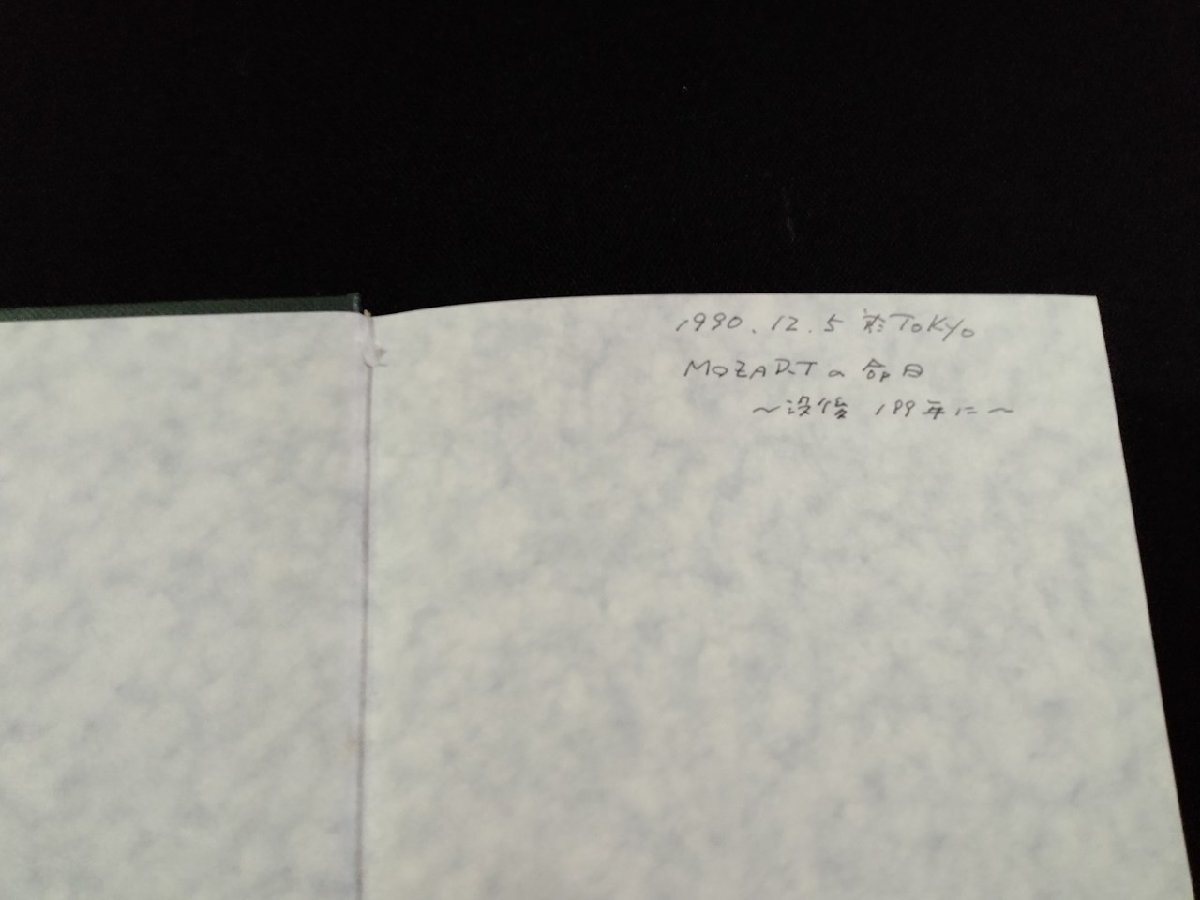 1990.12.5 TOKYO
MOZARTの命日
～没後 199年に～